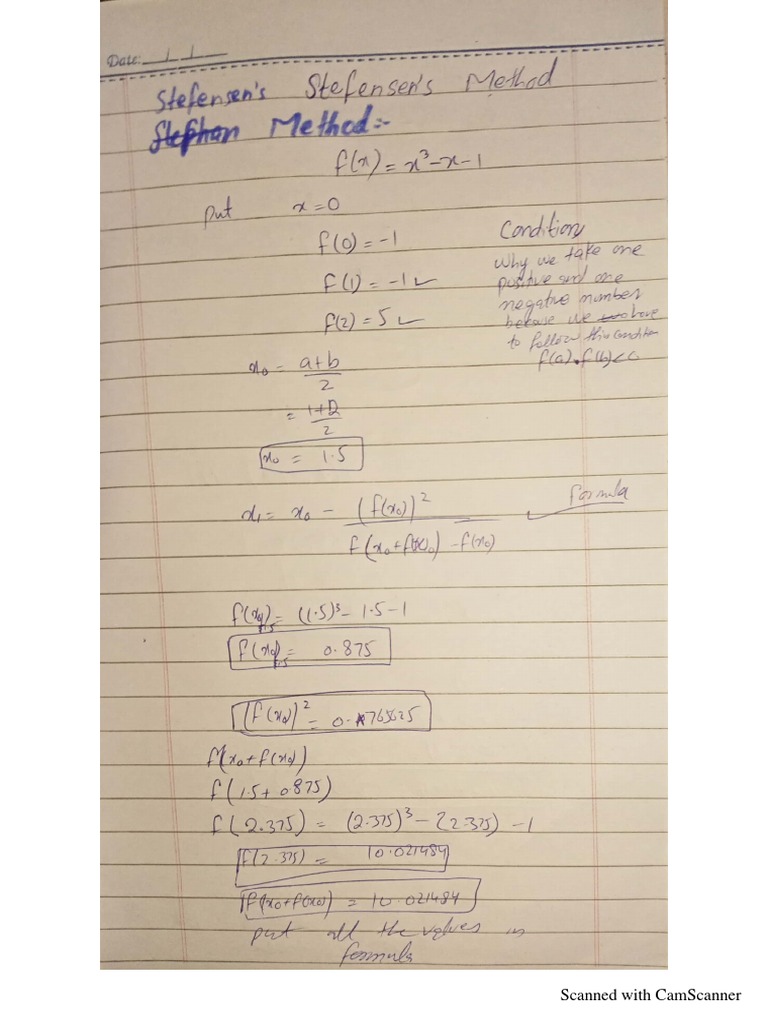 Date: / /
Stefensen's Stefensen's Method
Stephan Method:-
f(x) = x³-x-1
put x=0
f(0) = -1
f(1) = -1 ✓
f(2) = 5 ✓
Condition
Why we take one
positive and one
negative number
because we have
to follow this condition
f(a).f(b)<0
x₀ = a+b
2
= 1+2
2
x₀ = 1.5
x₁ = x₀ - (f(x₀))²
f(x₀+f(x₀)) - f(x₀)
✓ formula
f(x₀) = (1.5)³ - 1.5 - 1
f(x₀) = 0.875
(f(x₀))² = 0.765625
f(x₀+f(x₀))
f(1.5+0.875)
f(2.375) = (2.375)³ - (2.375) - 1
f(2.375) = 10.021484
f(x₀+f(x₀)) = 10.021484
put all the values in
formula
Scanned with CamScanner